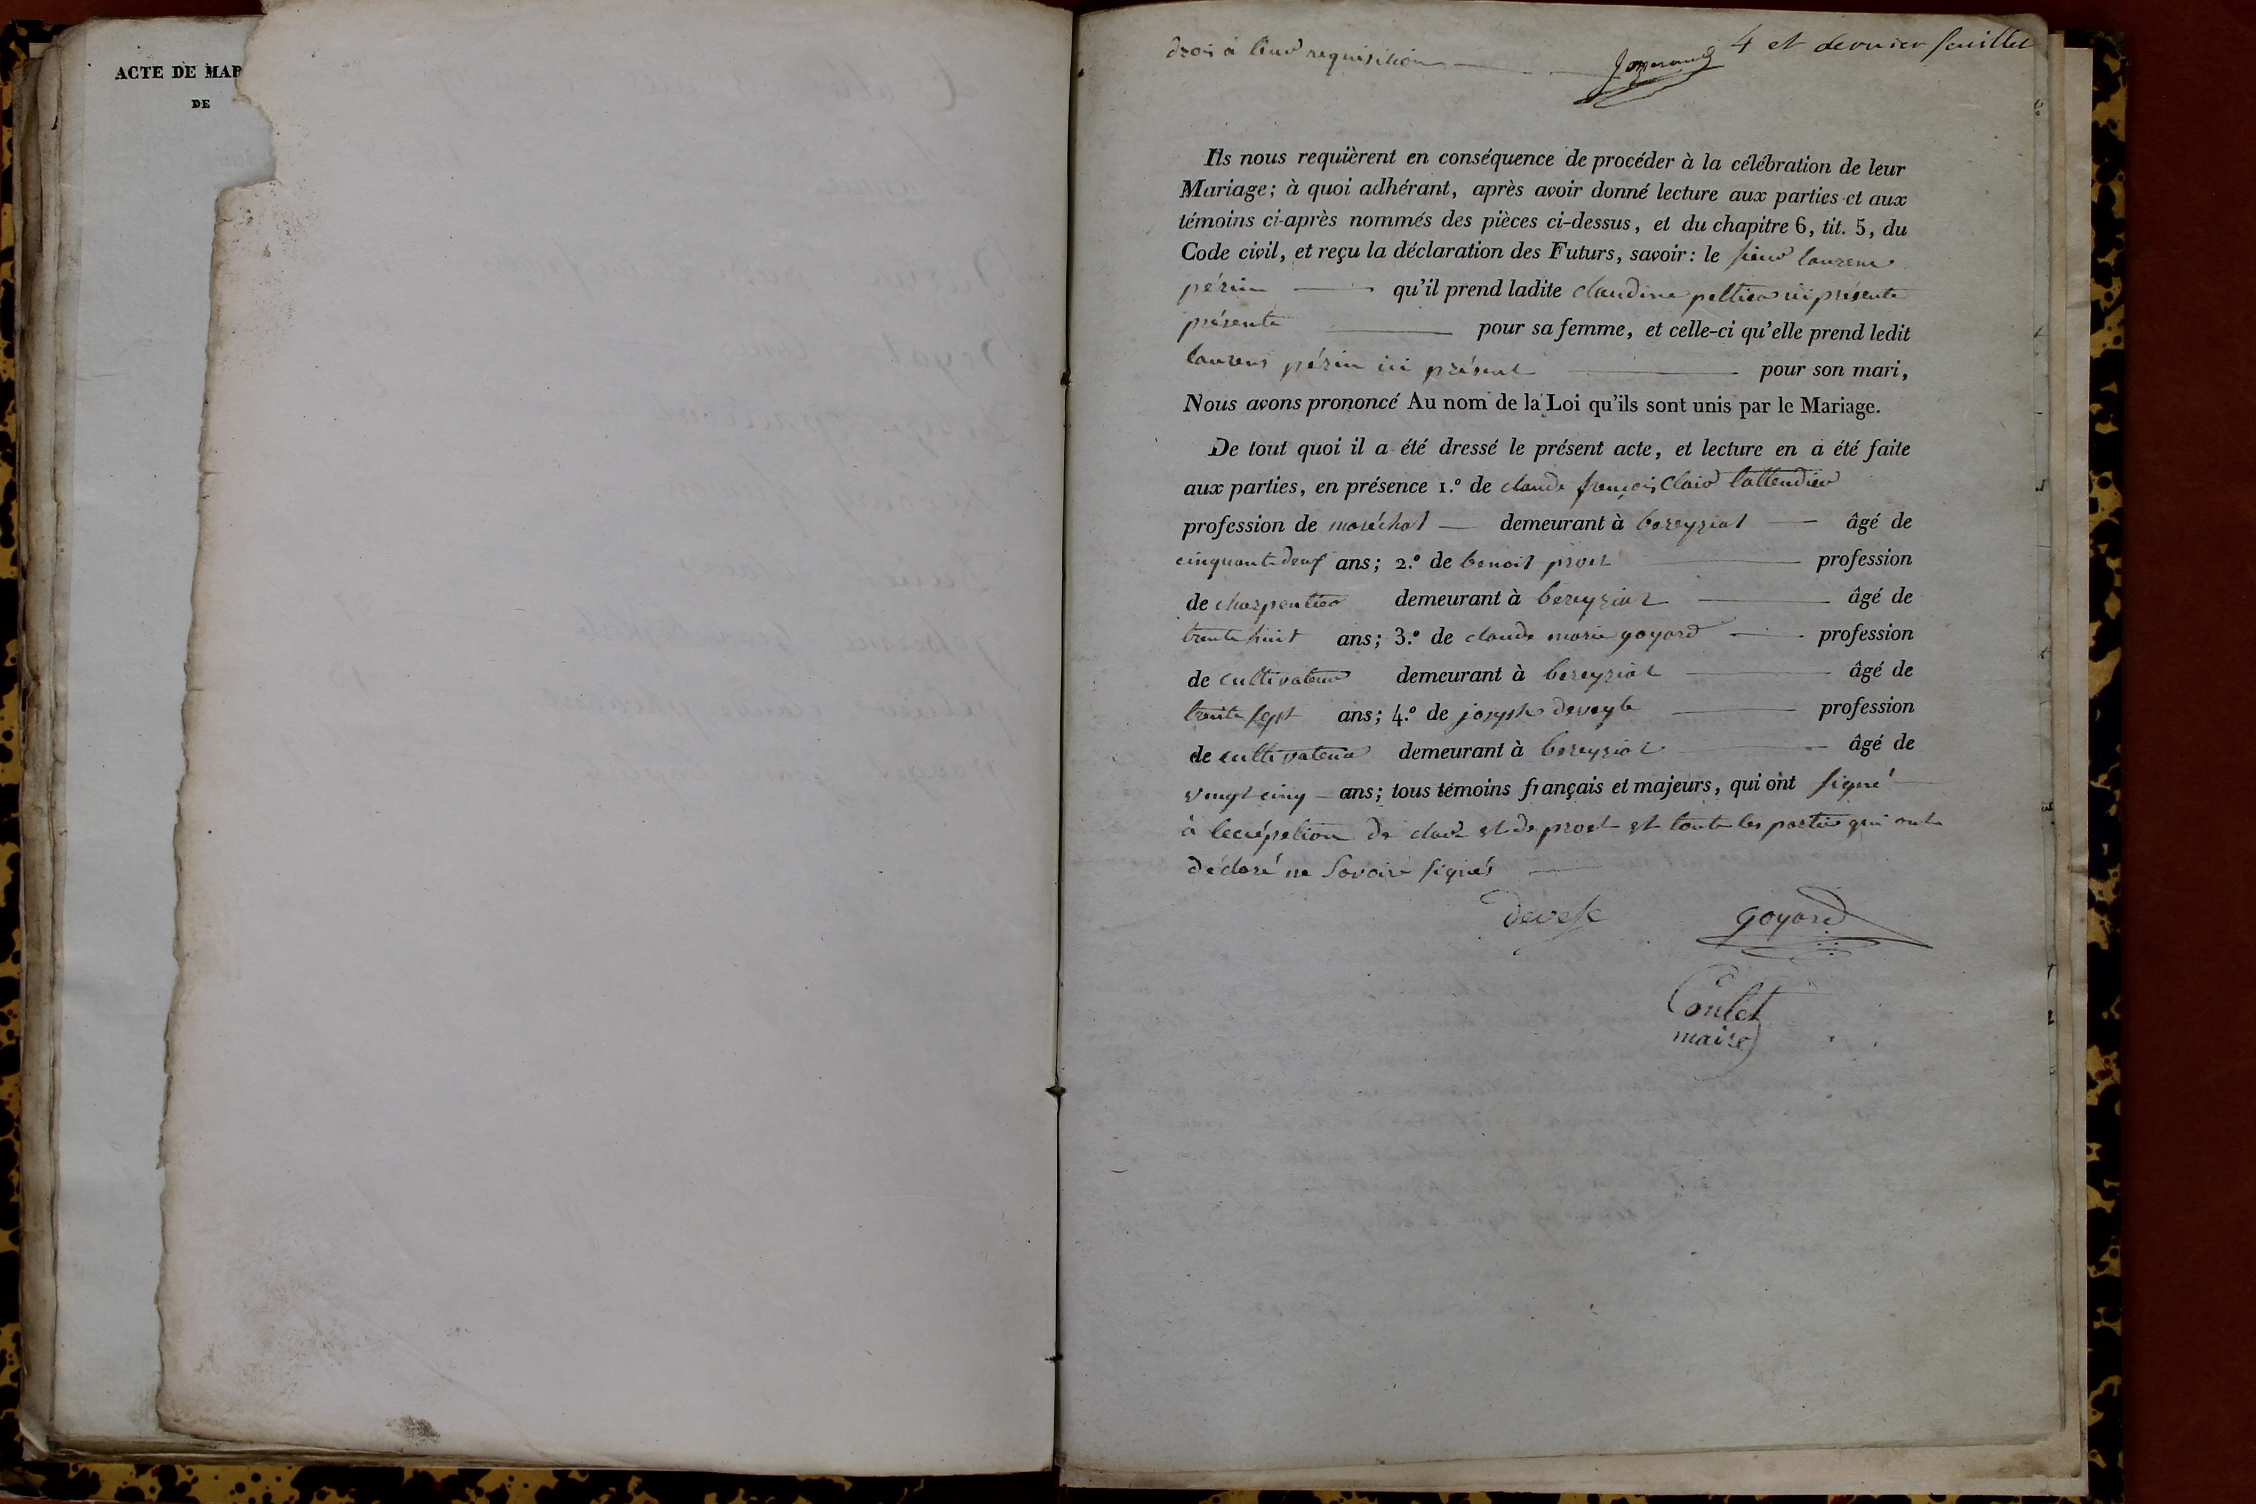 ACTE DE MAR
DE
droi à leur requisition
4 et dernier feuillet
Ils nous requièrent en conséquence de procéder à la célébration de leur
Mariage; à quoi adhérant, après avoir donné lecture aux parties et aux
témoins ci-après nommés des pièces ci-dessus, et du chapitre 6, tit. 5, du
Code civil, et reçu la déclaration des Futurs, savoir: le sieur laurens
périn qu'il prend ladite claudine peltier ici présente
présente pour sa femme, et celle-ci qu'elle prend ledit
laurens périn ici présent pour son mari,
Nous avons prononcé Au nom de la Loi qu'ils sont unis par le Mariage.
De tout quoi il a été dressé le présent acte, et lecture en a été faite
aux parties, en présence 1.º de claude françois Clair
profession de maréchal demeurant à bereyziat âgé de
cinquante deux ans; 2.º de benoit prost profession
de charpentier demeurant à bereyziat âgé de
trente huit ans; 3.º de claude marie goyard profession
de cultivateur demeurant à bereyziat âgé de
trente sept ans; 4.º de joseph profession
de cultivateur demeurant à bereyziat âgé de
vingt cinq ans; tous témoins français et majeurs, qui ont signé
à lecception de clair et de prost et toute les partie qui ont
déclaré ne Savoir signés
goyard
Coulet
maire